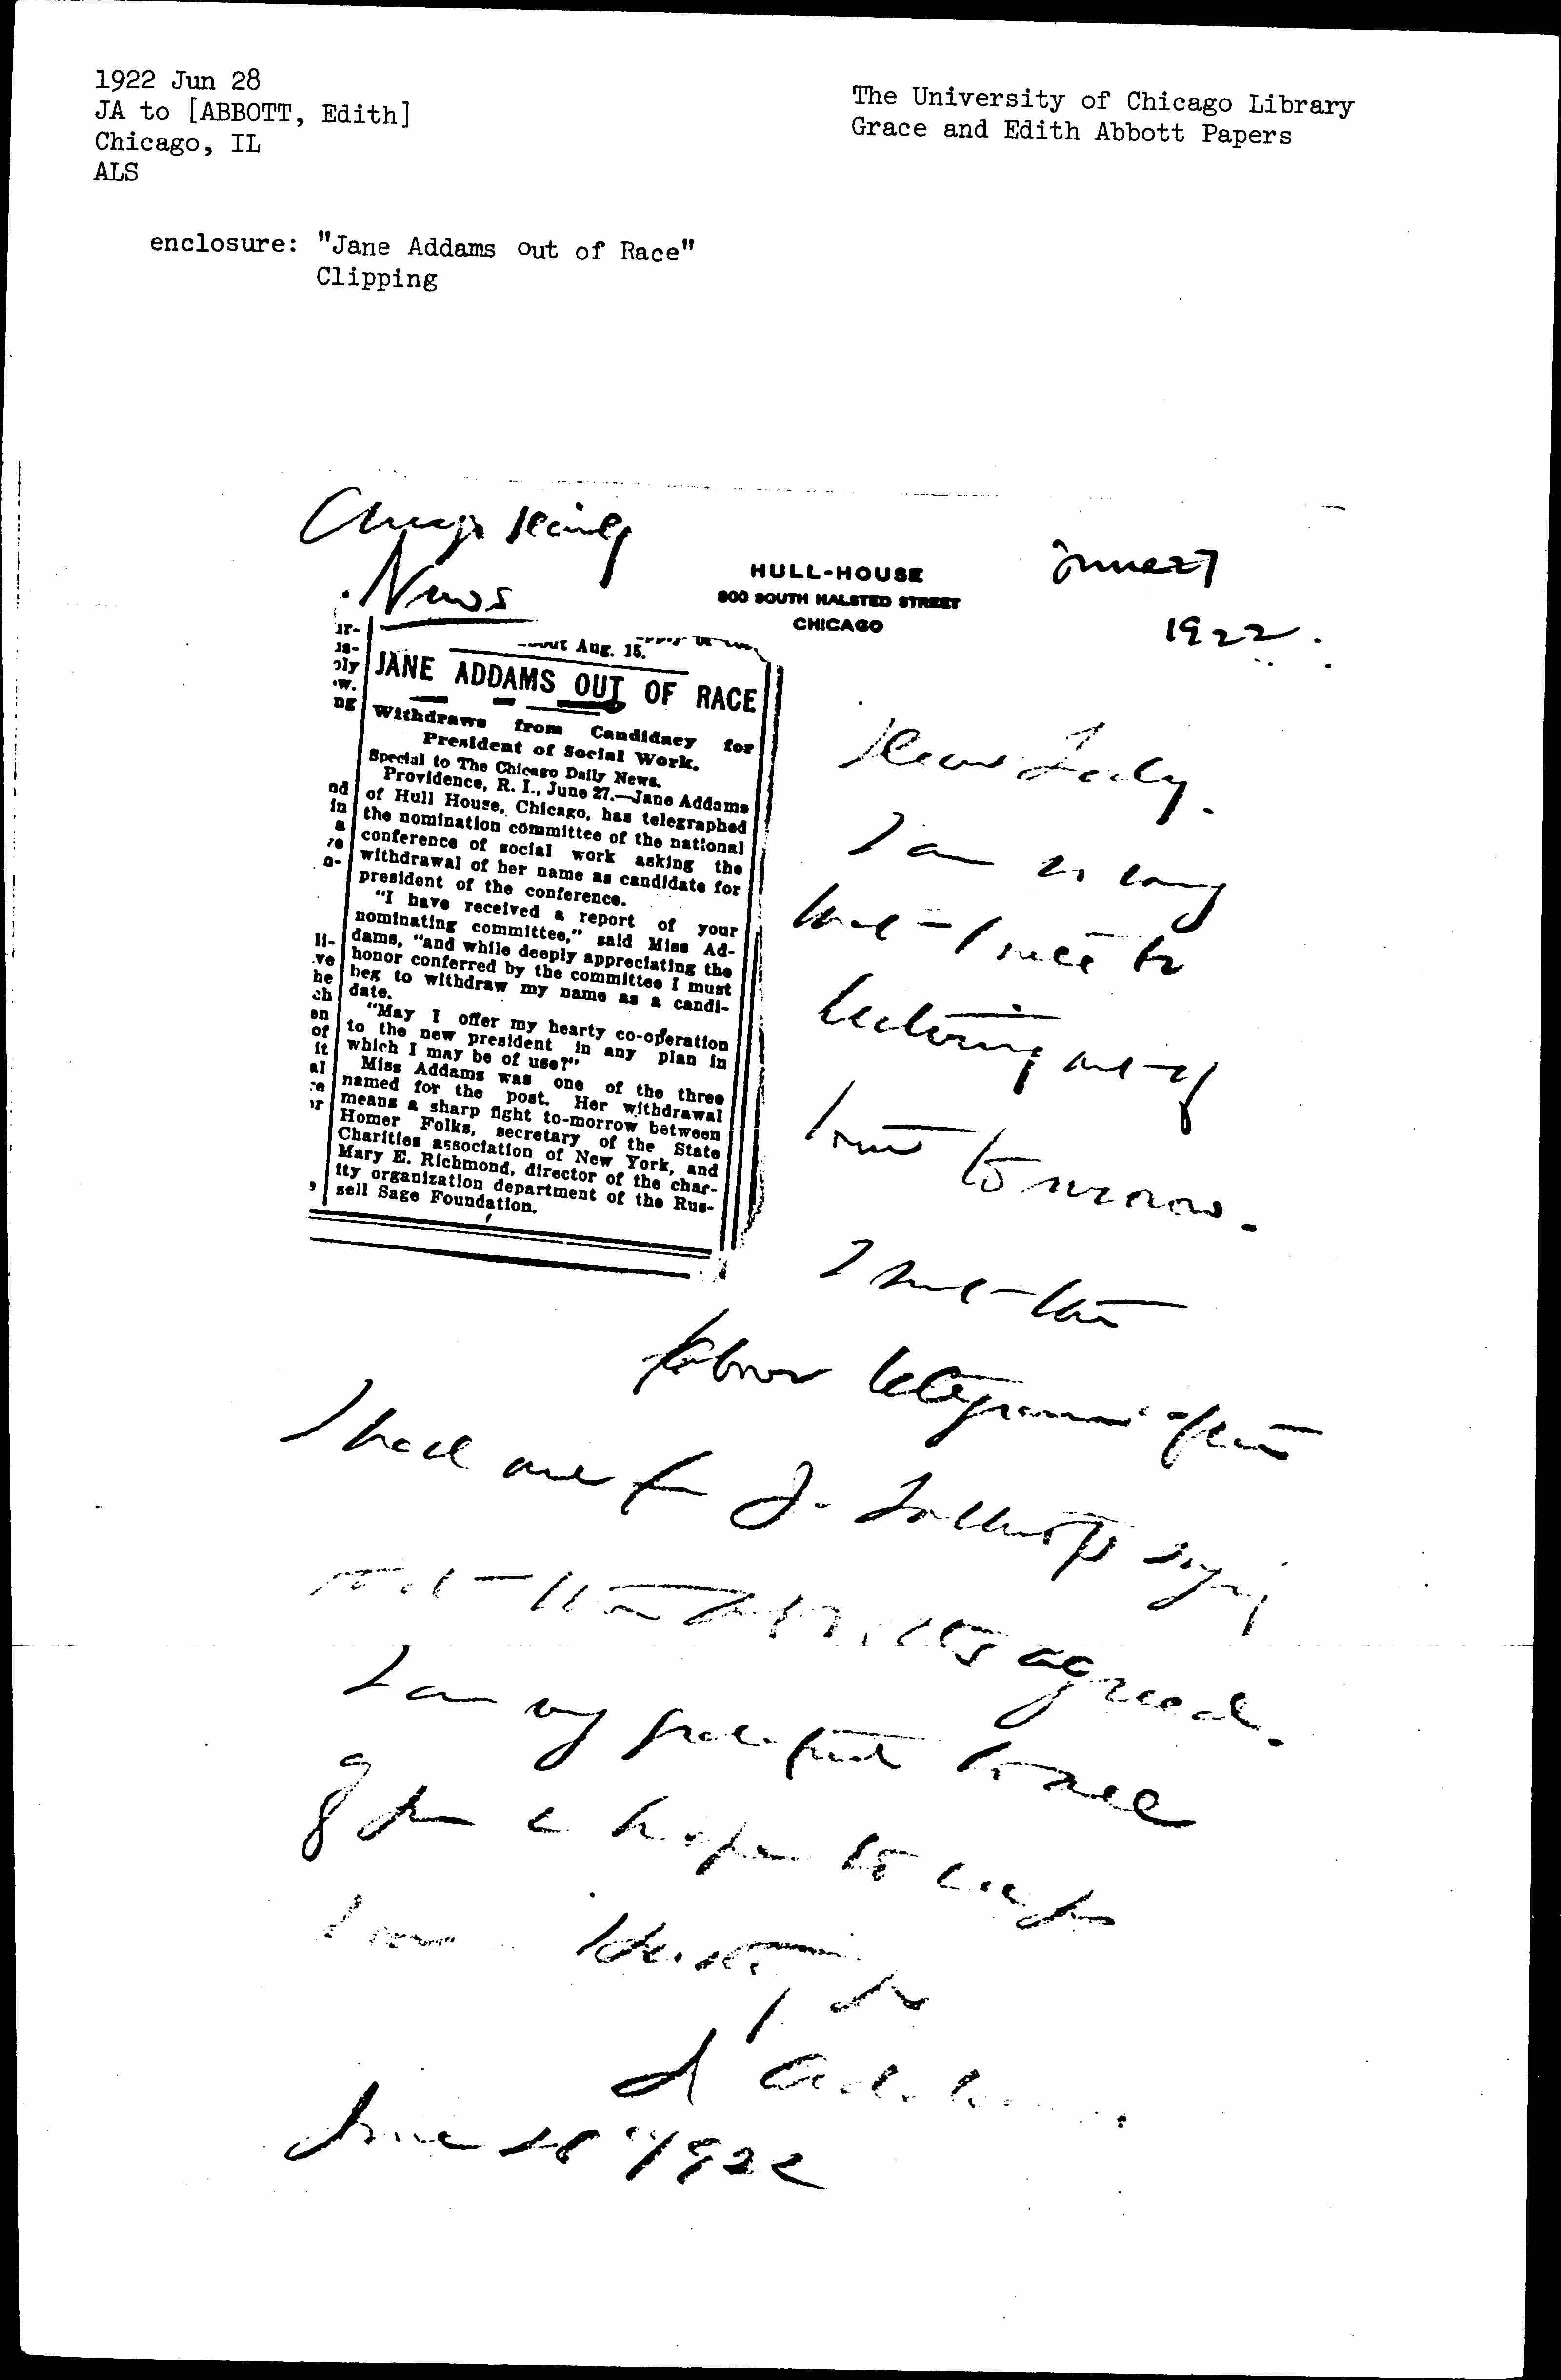 1922 Jun 28
JA to [ABBOTT, Edith]
Chicago, IL
ALS
The University of Chicago Library
Grace and Edith Abbott Papers
enclosure: "Jane Addams out of Race"
Clipping
Chicago Daily
News
HULL-HOUSE
800 SOUTH HALSTED STREET
CHICAGO
June 27
1922.
ir-
is-
ply
ow.
ng
nd
in
a
re
n-
li-
ve
he
ch
en
of
it
al
re
or
,
Aug. 15.
JANE ADDAMS OUT OF RACE
Withdraws from Candidacy for
President of Social Work.
Special to The Chicago Daily News.
Providence, R. I., June 27.—Jane Addams
of Hull House, Chicago, has telegraphed
the nomination committee of the national
conference of social work asking the
withdrawal of her name as candidate for
president of the conference.
"I have received a report of your
nominating committee," said Miss Ad-
dams, "and while deeply appreciating the
honor conferred by the committee I must
beg to withdraw my name as a candi-
date.
"May I offer my hearty co-operation
to the new president in any plan in
which I may be of use?"
Miss Addams was one of the three
named for the post. Her withdrawal
means a sharp fight to-morrow between
Homer Folks, secretary of the State
Charities association of New York, and
Mary E. Richmond, director of the char-
ity organization department of the Rus-
sell Sage Foundation.
Dear Lady.
I am so sorry
but I have to
lecturing out of
town tomorrow.
I sent the
above telegram after
I had one from J. Lathrop saying
that agreed.
I am very grateful to all
of you & hope to
J Addams
June 28" 1922